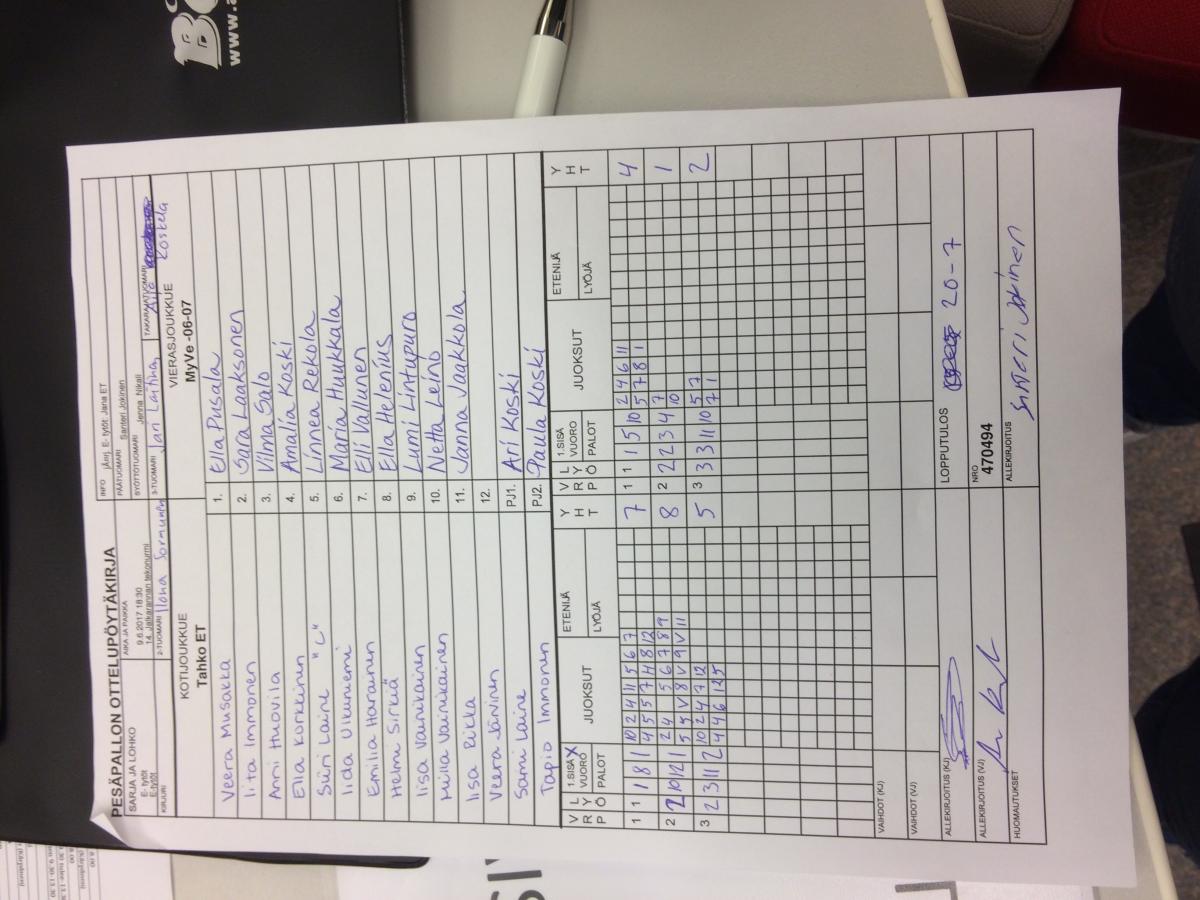 www.a
PESÄPALLON OTTELUPÖYTÄKIRJA
SARJA JA LOHKO
E- tytöt
E-tytöt
AIKA JA PAIKKA
9.6.2017 18:30
14. Jalkarannan tekonurmi
INFO
jÄrj. E- tytöt: Jana ET
PÄÄTUOMARI Santeri Jokinen
SYÖTTÖTUOMARI Jenna Nikali
KIRJURI
2-TUOMARI Ilona Sormunen
3-TUOMARI Jari Laitina,
TAKARAJATUOMARI
Koskela
KOTIJOUKKUE
Tahko ET
VIERASJOUKKUE
MyVe -06-07
Veera Musakka 1. Ella Pusala
Iita Immonen 2. Sara Laaksonen
Anni Huovila 3. Vilma Salo
Ella Korkeinen 4. Amalia Koski
Siiri Laine "L" 5. Linnea Rekola
Iida Ulkuniemi 6. Maria Huukkala
Emilia Haranen 7. Elli Vallunen
Helmi Sirkiä 8. Ella Helenius
Iisa Vainikainen 9. Lumi Lintupuro
Milla Vainikainen 10. Netta Leino
Iisa Rikka 11. Janna Jaakkola
Veera Järvinen 12.
Sami Laine PJ1. Ari Koski
Tapio Immonen PJ2. Paula Koski
V R P L Y Ö 1.SISÄ X VUORO PALOT JUOKSUT ETENIJÄ LYÖJÄ Y H T
V R P L Y Ö 1.SISÄ VUORO PALOT JUOKSUT ETENIJÄ LYÖJÄ Y H T
1 1 1 8 1 10 2 4 11 5 6 7 7 1 1 1 5 10 2 4 6 11 4
4 5 5 7 4 8 12 5 7 8 1
2 2 10 12 1 2 4 5 6 7 8 9 8 2 2 2 3 4 7 1
5 5 V 8 V 9 V 11 10
3 2 3 11 2 10 2 4 7 12 5 3 3 3 11 10 5 7 2
4 4 6 12 5 7 1
VAIHDOT (KJ)
VAIHDOT (VJ)
ALLEKIRJOITUS (KJ)
LOPPUTULOS 20-7
ALLEKIRJOITUS (VJ)
NRO
470494
HUOMAUTUKSET
ALLEKIRJOITUS
Jokinen